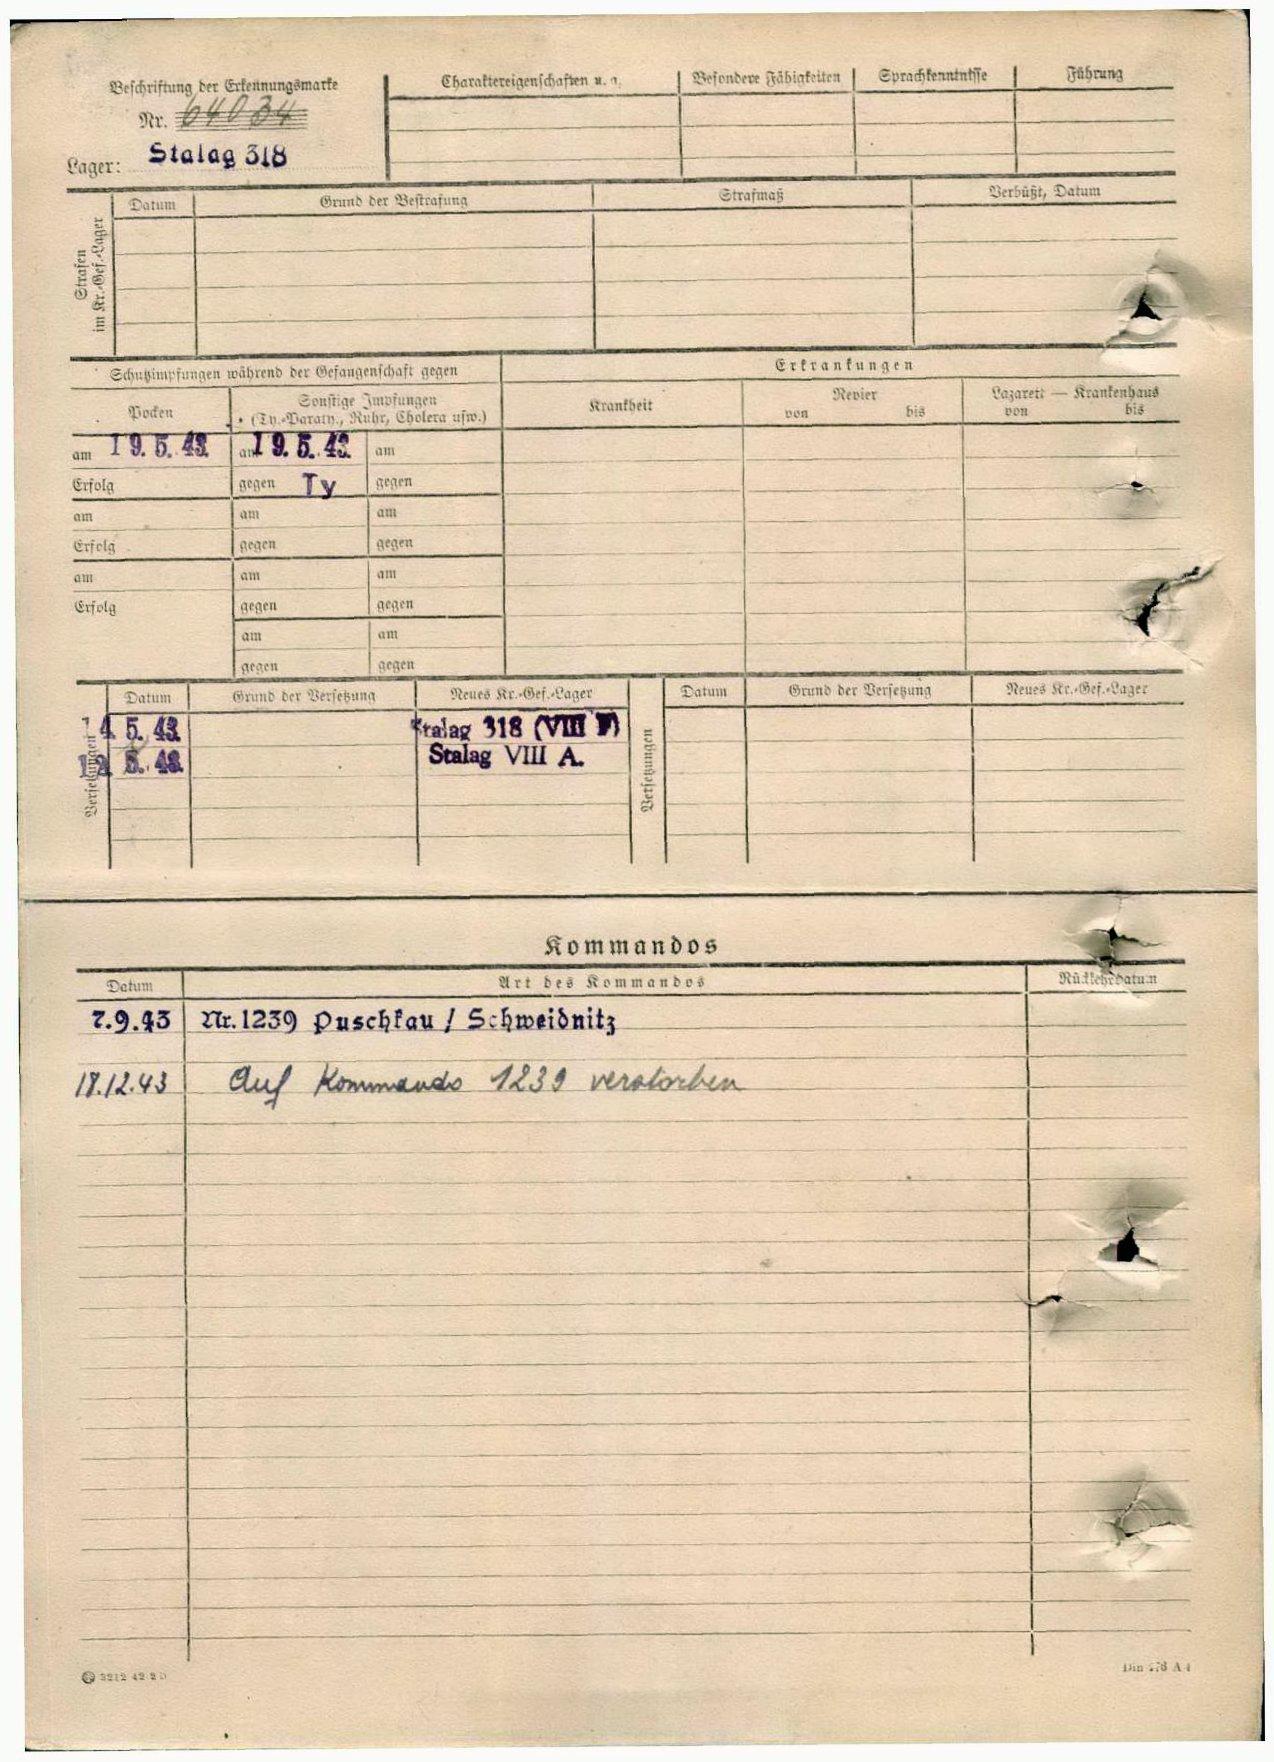 Beschriftung der Erkennungsmarke
Nr. 64034
Lager: Stalag 318
Charaktereigenschaften u. a.
Besondere Fähigkeiten
Sprachkenntnisse
Führung
Strafen
im Kr.-Gef.-Lager
Datum
Grund der Bestrafung
Strafmaß
Verbüßt, Datum
Schutzimpfungen während der Gefangenschaft gegen
Erkrankungen
Pocken
Sonstige Impfungen
(Ty.-Paraty., Ruhr, Cholera usw.)
Krankheit
Revier
von bis
Lazarett — Krankenhaus
von bis
am 19.5.43. am 19.5.43. am
Erfolg gegen Ty gegen
am am am
Erfolg gegen gegen
am am am
Erfolg gegen gegen
am am
gegen gegen
Versetzungen
Datum Grund der Versetzung Neues Kr.-Gef.-Lager
14.5.43. Stalag 318 (VIII F)
5.43. Stalag VIII A.
Versetzungen
Datum Grund der Versetzung Neues Kr.-Gef.-Lager
Kommandos
Datum Art des Kommandos Rückkehrdatum
7.9.43 Nr. 1239 Puschkau / Schweidnitz
18.12.43 Auf Kommando 1239 verstorben
3212 42 2 D
Din 476 A 4